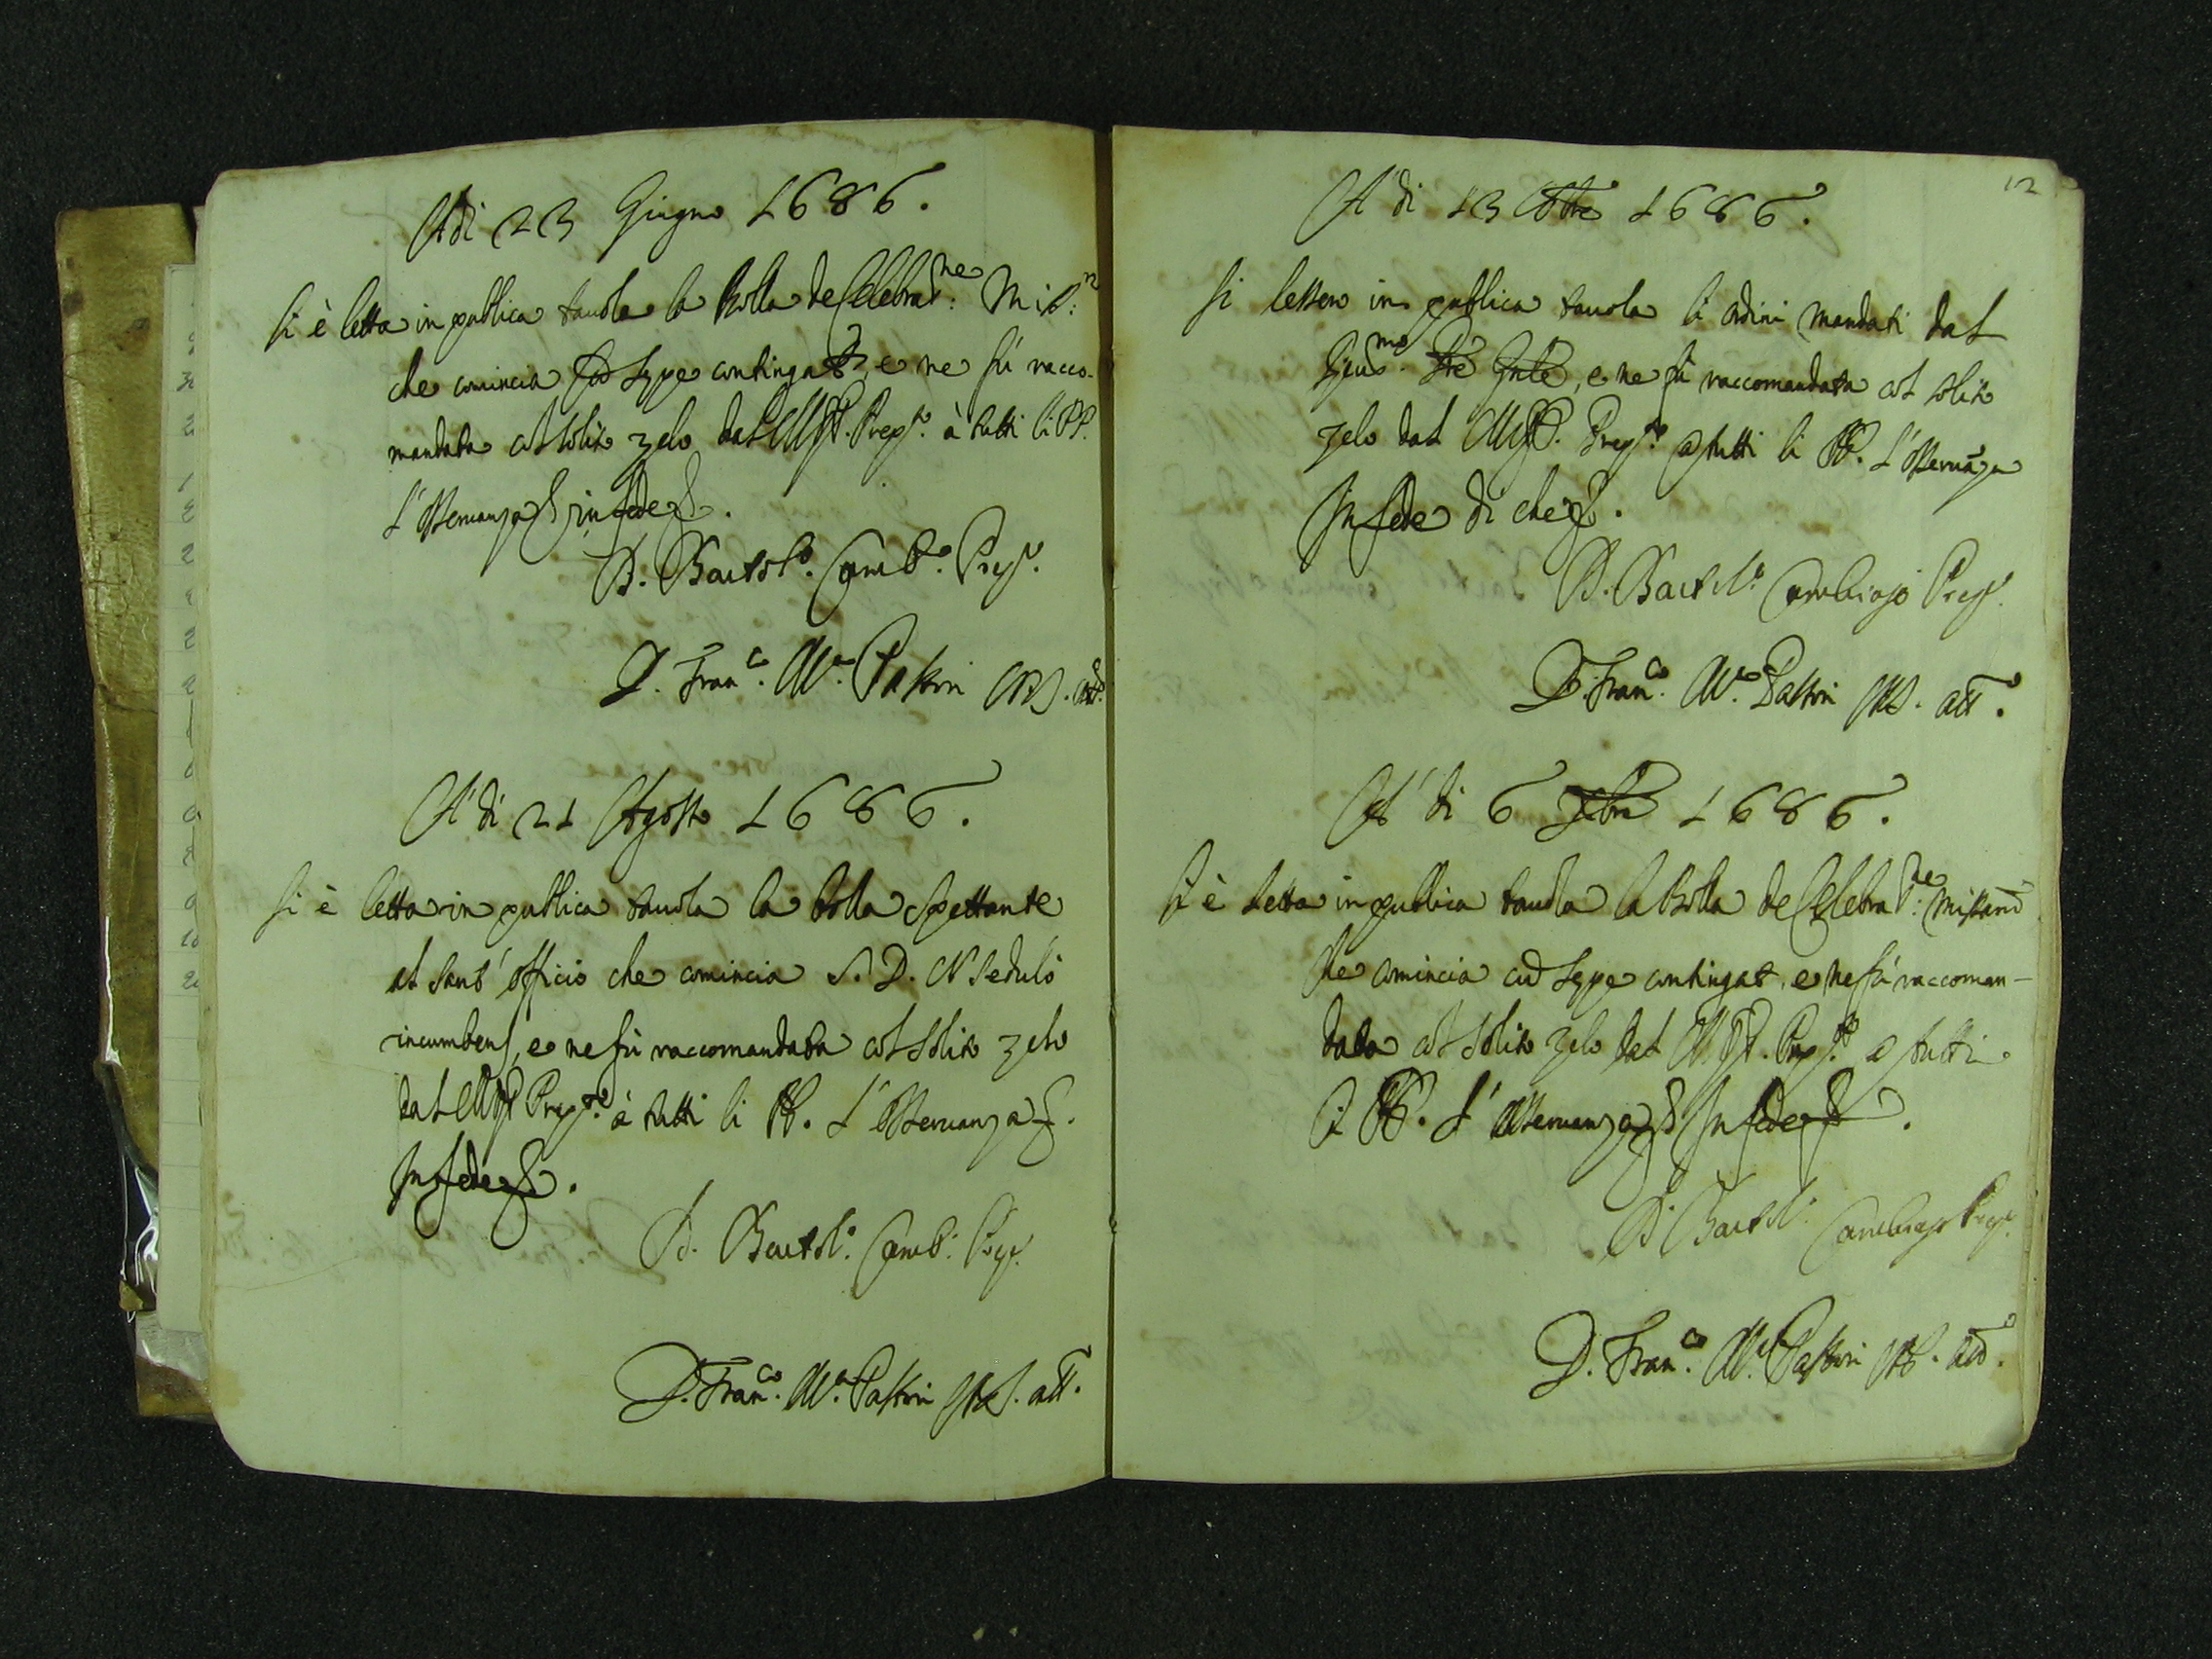 Adi 23 Giugno 1686.
Si è letta in publica tavola la Bolla de Celebrat.ne Mis:
che comincia Cum sepe contingat, e ne fù racco-
mandata col solito zelo dal M. P. Prep.to à tutti li PP.
l'osservanza in fede
D. Bartol.o Camb.o Prep.o
D. Fran.co M.a Pastori CRS. att.
A' di 21 Agosto 1686.
Si è letta in publica tavola la bolla spettante
al Sant' officio che comincia S. D. N sedulò
incumbens, e ne fù raccomandata col solito zelo
dal P. Prep.to à tutti li PP. l'osservanza
In fede
D. Bartol.o Camb.o Prep.o
D. Fran.co M.a Pastori att.
12
A di 13 1686.
Si lessero in publica tavola li ordini mandati dal
Pre Gnle, e ne fù raccomandata col solito
zelo dal P. Prep.to a tutti li PP. l'osservāza
In fede di che
D. Bartol.o Cambiaso Prep.o
D. Fran.co M.a Pastori att.
A' di 6 1686.
Si è letta in publica tavola la Bolla de Celebrat.ne Missarū
che comincia cū sepe contingat, e ne fù raccoman-
data col solito zelo dal P. Prep.to a tutti
li PP. l'osservanza In fede
D. Bartol.o Cambiaso Prep.o
D. Fran.co M.a Pastori att.